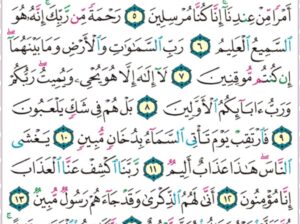 أَمْرًا مِّنْ عِندِنَا إِنَّا كُنَّا مُرْسِلِينَ ٥ رَحْمَةً مِّن رَّبِّكَ إِنَّهُ هُوَ
السَّمِيعُ الْعَلِيمُ ٦ رَبِّ السَّمَٰوَٰتِ وَالْأَرْضِ وَمَا بَيْنَهُمَا
إِن كُنتُم مُّوقِنِينَ ٧ لَا إِلَٰهَ إِلَّا هُوَ يُحْيِي وَيُمِيتُ رَبُّكُمْ
وَرَبُّ ءَابَائِكُمُ الْأَوَّلِينَ ٨ بَلْ هُمْ فِي شَكٍّ يَلْعَبُونَ
٩ فَارْتَقِبْ يَوْمَ تَأْتِي السَّمَاءُ بِدُخَانٍ مُّبِينٍ ١٠ يَغْشَى
النَّاسَ هَٰذَا عَذَابٌ أَلِيمٌ ١١ رَّبَّنَا اكْشِفْ عَنَّا الْعَذَابَ
إِنَّا مُؤْمِنُونَ ١٢ أَنَّىٰ لَهُمُ الذِّكْرَىٰ وَقَدْ جَاءَهُمْ رَسُولٌ مُّبِينٌ ١٣